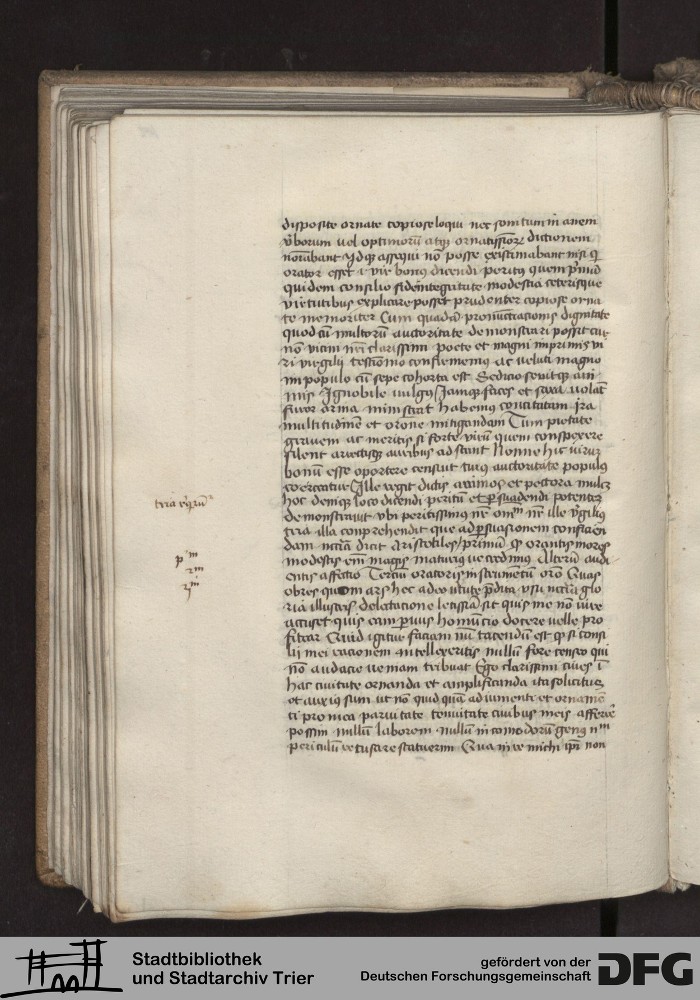 disposite ornate copiose loqui nec somtum in anem
v̄borum uel optimorū atqȝ ornatissimoꝝ dictionem
norābant ydqȝ assequi nō posse existimabant nisi qͥ
orator esset ·i· vir bonus dicendi peritus quem p̄mū
quidem consilio fide integritate modestia ceterisque
virtutibus explicare posset prudenter copiose orna
te memoriter Cum quadā pronuncciacionis dignitate
quod cū multorū auctoritate demonstrari possit tū
nō vnius nr̄i clarissimi poete et magni imprimis vi
ri virgilij testimōio confirmemus ac veluti magno
in populo cū sepe cohorta est Sedicio seuitqȝ ani
mis Ignobile vulgus Jamqȝ faces et saxa volāt
furor arma ministrat habemus concitatam ira
multitudinē et oratione mitigandam Tum pietate
grauem ac meritis si forte virū quem conspexere
silent arrectisqȝ auribus adstant Nonne hic virū
bonū esse oportere censuit cuius auctoritate populus
coerceatur Ille regit dictis animos et pectora mulcȝ
hoc denique loco dicendi peritū et p̱suadendi potentē
demonstrauit vbi peritissimus nr̄ om̄m nr̄ ille v̄gilius
tria illa comprehendit que ad p̱suasionem confitēn
dam dicit Aristotiles primū qȝ orantis mores
modestis em̄ magis maturius ve credimus Alterū audi
entis affectio Tercia oratoris instrumentū orō Quas
obres quom ars hec adeo vtute p̄dita vsu gło
ria illustris delectacione letissīa sit quis me nō iure
accuset quis eam p̱uus homūcio docere uelle pro
fitear Quid igitur faciam nū tacendū est qȝ si consi
lij mei racionem intellexeritis nullū fore censeo qui
nō audacie ueniam tribuat Ego clarissimi ciues ī
hac ciuitate ornanda et amplificanda ita solicitus
et anxius sum ut nō quid quā adiumenti et ornamē
ti pro mea paruitate tenuitate ciuibus meis afferre
possim nullū laborem nullū incomodorū genus nll̄m
periculū recusare statuerim Qua in re michi ipī non
tria
p̱m
2m
3m
Stadtbibliothek
und Stadtarchiv Trier
gefördert von der
Deutschen Forschungsgemeinschaft
DFG